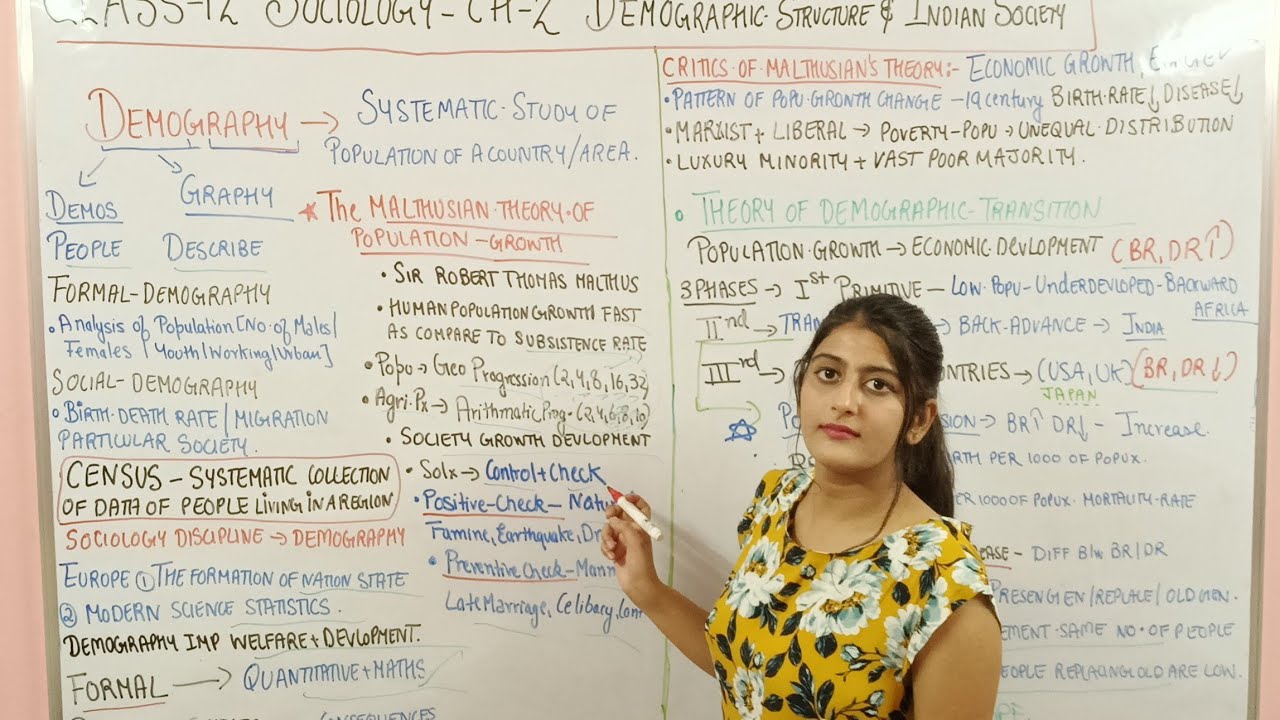 CLASS-12 SOCIOLOGY - CH-2 DEMOGRAPHIC STRUCTURE & INDIAN SOCIETY
DEMOGRAPHY → SYSTEMATIC STUDY OF
POPULATION OF A COUNTRY/AREA.
DEMOS GRAPHY
PEOPLE DESCRIBE
FORMAL-DEMOGRAPHY
• Analysis of Population [No. of Males/
Females / Youth/Working/Urban]
SOCIAL-DEMOGRAPHY
• BIRTH-DEATH RATE / MIGRATION
PARTICULAR SOCIETY.
CENSUS - SYSTEMATIC COLLECTION
OF DATA OF PEOPLE LIVING IN A REGION
SOCIOLOGY DISCIPLINE → DEMOGRAPHY
EUROPE ① THE FORMATION OF NATION STATE
② MODERN SCIENCE STATISTICS.
DEMOGRAPHY IMP WELFARE + DEVLOPMENT.
FORMAL → QUANTITATIVE + MATHS
CONSEQUENCES
★ The MALTHUSIAN THEORY OF
POPULATION - GROWTH
• SIR ROBERT THOMAS MALTHUS
• HUMAN POPULATION GROWTH FAST
AS COMPARE TO SUBSISTENCE RATE
• Popu → Geo Progression (2,4,8,16,32)
• Agri.Px → Arithmatic Prog. (2,4,6,8,10)
• SOCIETY GROWTH DEVLOPMENT
• Solx → Control + Check
• Positive-Check -
Famine, Earthquake,
• Preventive Check -
Late Marriage, Celibacy,
CRITICS OF MALTHUSIAN'S THEORY:- ECONOMIC GROWTH,
• PATTERN OF POPU. GROWTH CHANGE - 19 century BIRTH RATE↓ DISEASE↓
• MARXIST + LIBERAL → POVERTY-POPU → UNEQUAL DISTRIBUTION
• LUXURY MINORITY + VAST POOR MAJORITY.
• THEORY OF DEMOGRAPHIC-TRANSITION
POPULATION GROWTH → ECONOMIC DEVLOPMENT (BR, DR↑)
3 PHASES → Ist PRIMITIVE - LOW POPU - UNDERDEVLOPED - BACKWARD
AFRICA
IInd → BACK-ADVANCE → INDIA
IIIrd → → (USA, UK) (BR, DR↓)
JAPAN
→ BR↑ DR↓ - Increase.
PER 1000 OF POPUX.
PER 1000 OF POPUX. MORTALITY-RATE
- DIFF B/w BR/DR
REPLACE / OLD GEN.
SAME NO. OF PEOPLE
REPLACING OLD ARE LOW.